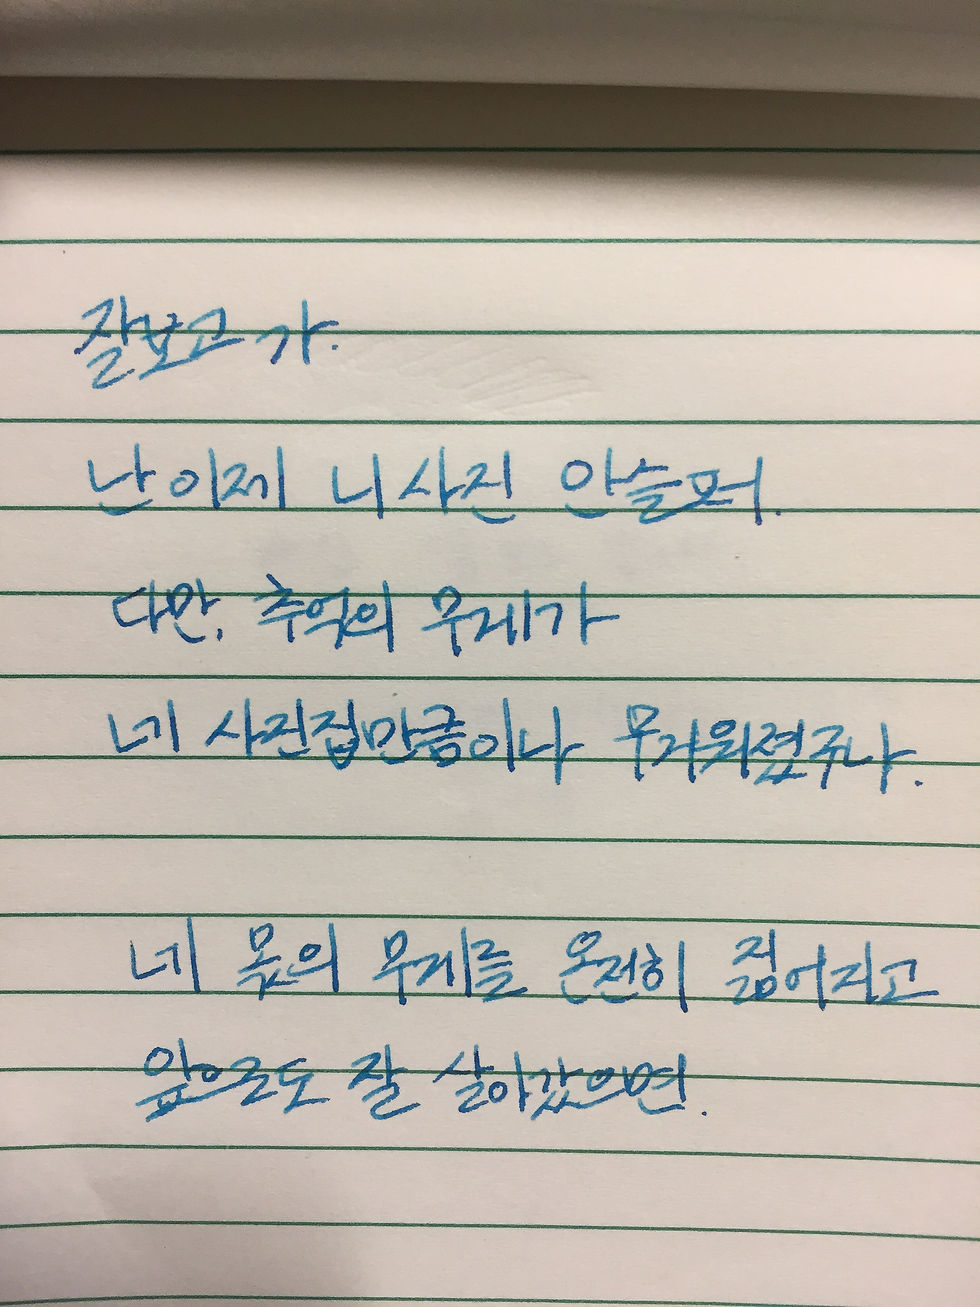 잘보고 가.
난 이제 니 사진 안슬퍼.
다만, 추억의 무게가
네 사진집만큼이나 무거워졌구나.
네 몫의 무게를 온전히 짊어지고
앞으로도 잘 살아갔으면.